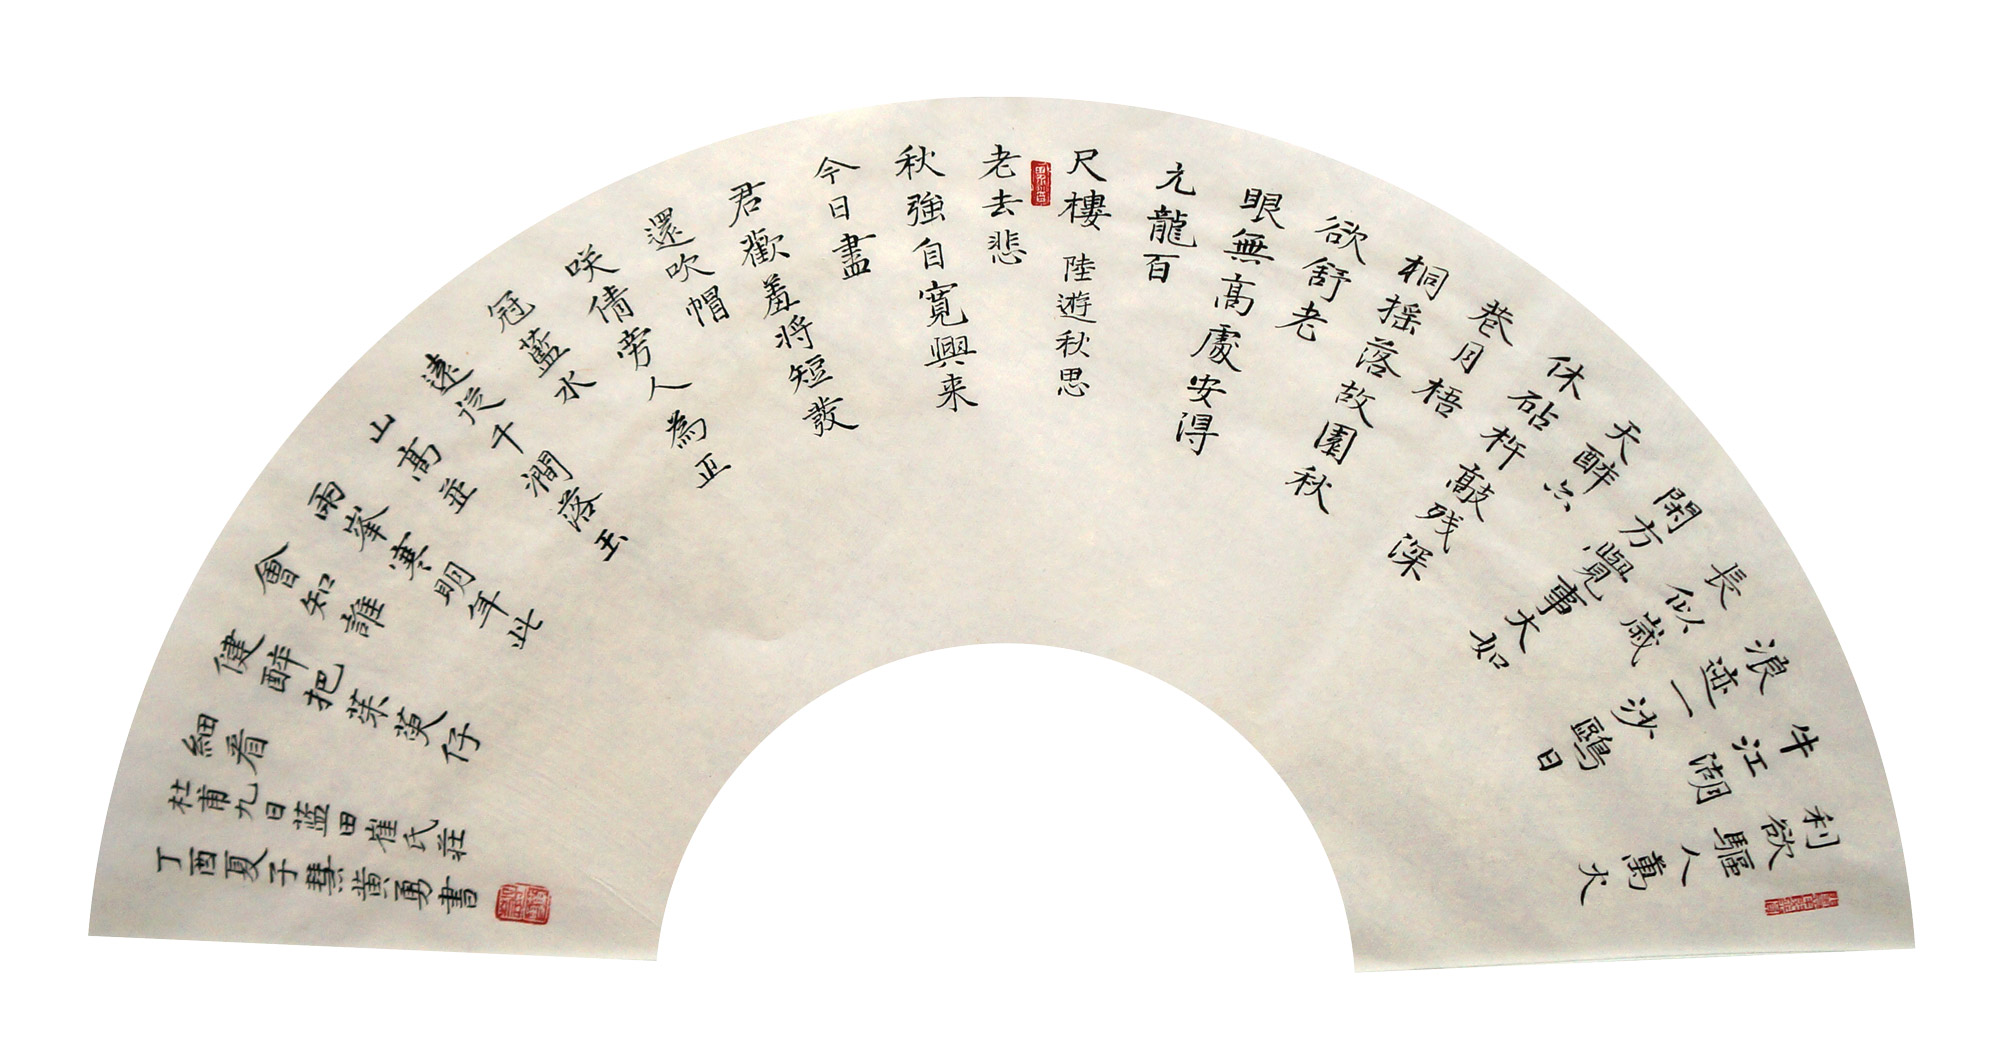 利欲驅人萬火
牛江湖
浪迹一沙鷗日
長似歲
閑方覺事大如
天醉亦
休砧杵敲残深
巷月梧
桐摇落故園秋
欲舒老
眼無高處安得
元龍百
尺樓 陸遊秋思
老去悲
秋強自寬興来
今日盡
君歡羞将短發
還吹帽
咲倩旁人為正
冠藍水
遠從千澗落玉
山高並
兩峯寒明年此
會知誰
健醉把茱萸仔
細看
杜甫九日藍田崔氏莊
丁酉夏子慧黄勇書